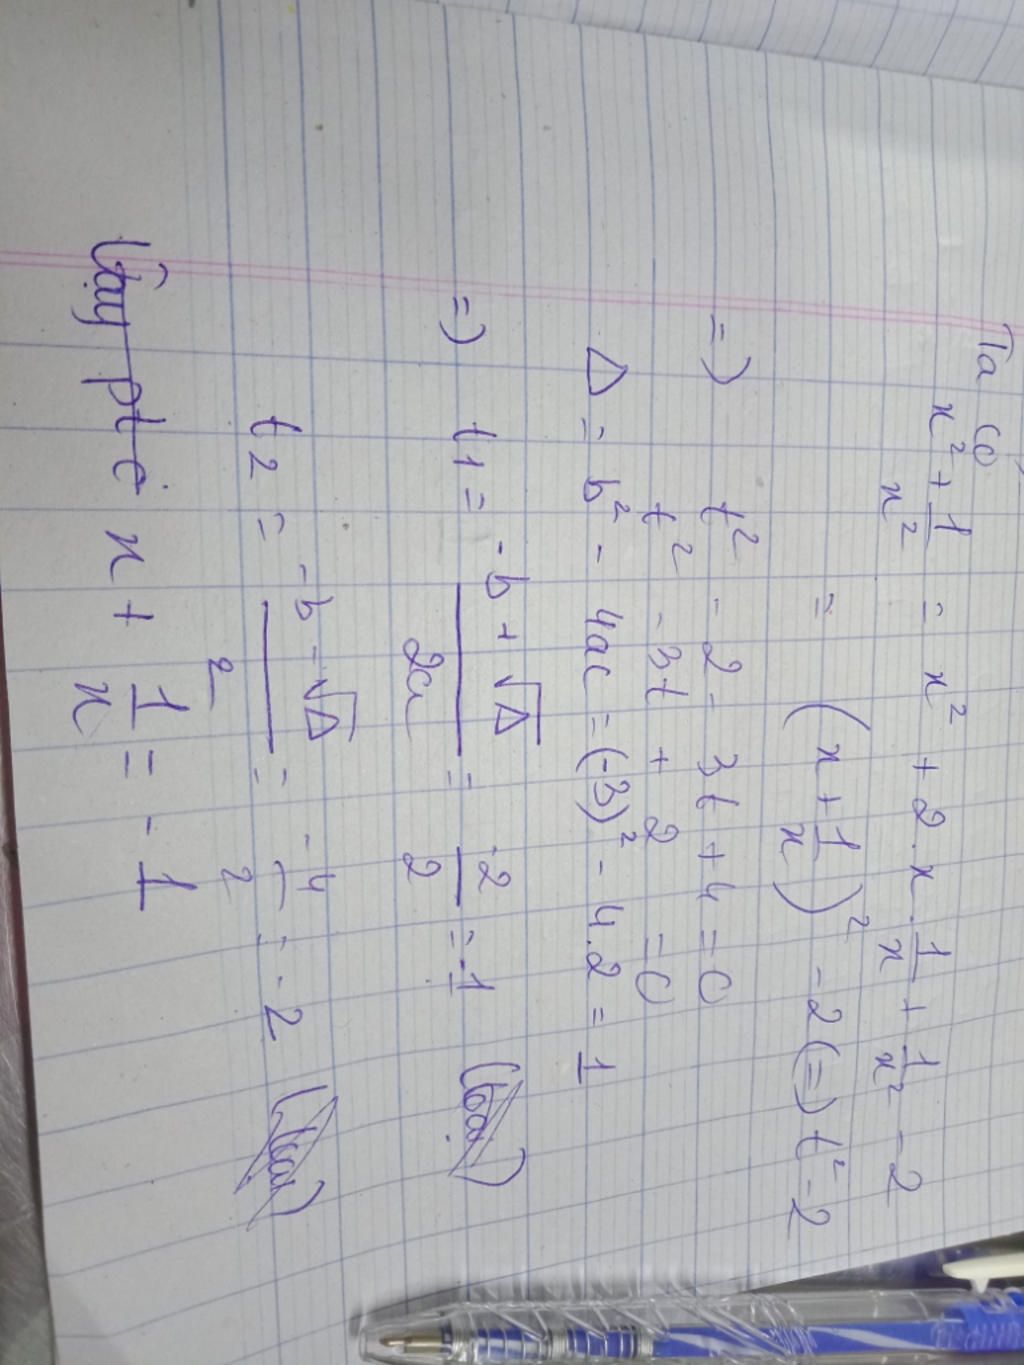 Ta có
x² + 1/x² = x² + 2.x.1/x + 1/x² - 2
= (x + 1/x)² - 2 (=) t² - 2
=) t² - 2 - 3t + 4 = 0
t² - 3t + 2 = 0
Δ = b² - 4ac = (-3)² - 4.2 = 1
=) t1 = -b + √Δ / 2a = -2/2 = -1
t2 = -b - √Δ / 2 = -4/2 = -2
Vậy pt có x + 1/x = -1